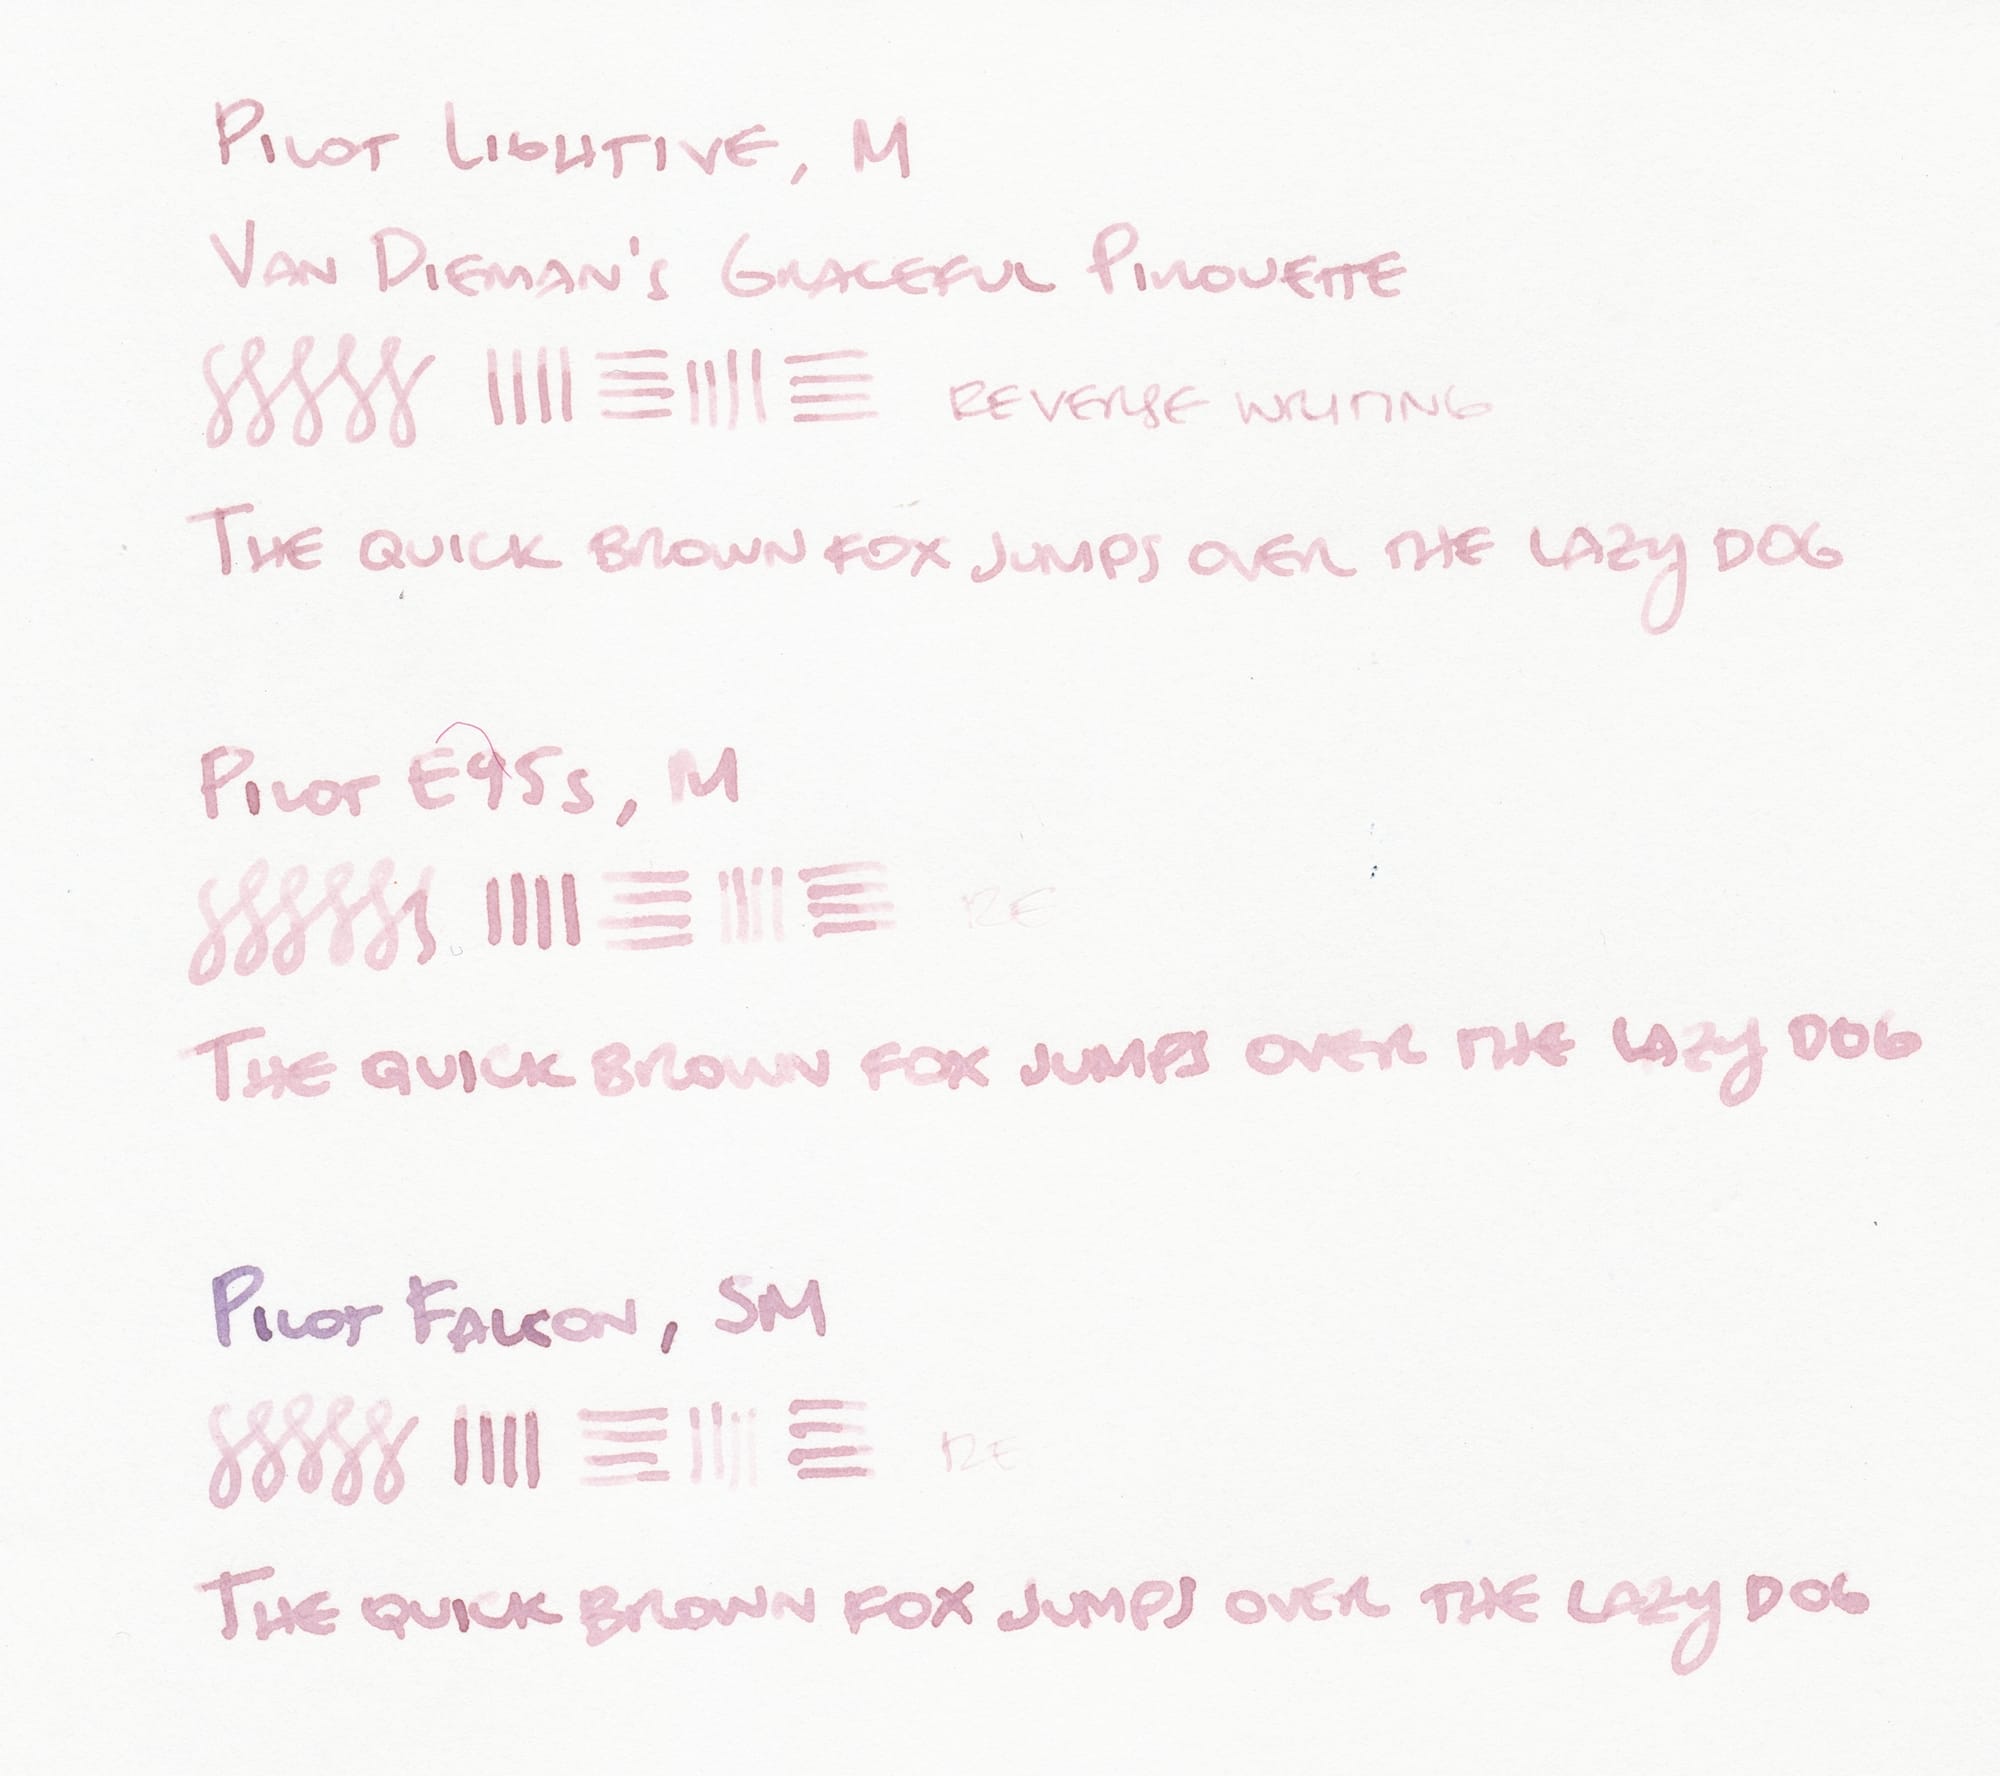 Pilot Lightive, M
Van Dieman's Graceful Pirouette
Reverse Writing
The quick brown fox jumps over the lazy dog
Pilot E95s, M
Re
The quick brown fox jumps over the lazy dog
Pilot Falcon, SM
Re
The quick brown fox jumps over the lazy dog